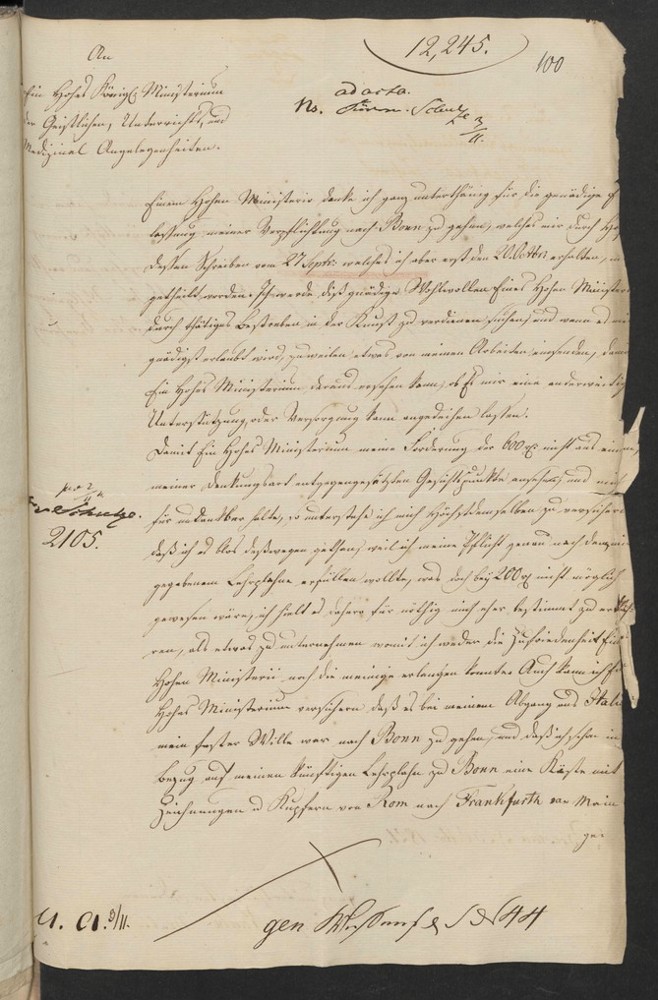 12,245.
100
An
Ein Hohes Königl. Ministerium
der Geistlichen, Unterrichts, und
Medizinal Angelegenheiten.
ad acta.
Ns.
Einem Hohen Ministerio danke ich ganz unterthänig für die gnädige
lassung meiner Verpflichtung nach Bonn zu gehen, welches mir durch
dessen Schreiben vom 27 Septbr. welches ich aber erst den 20 Octbr. erhalten,
getheilt worden. Ich werde diß gnädige Wohlwollen Eines Hohen Minister
durch thätiges Bestreben in der Kunst zu verdienen suchen, und wenn es
gnädigst erlaubt wird, zuweilen etwas von meinen Arbeiten einsenden,
Ein Hohes Ministerium daraus ersehen kann, ob Es mir eine anderweitige
Unterstützung oder Versorgung kann angedeihen lassen.
Damit Ein Hohes Ministerium meine Forderung der 600 nicht aus
meiner Denkungsart entgegengesetzten Gesichtspunkte ansehe, und mich
für undankbar halte, so unterstehe ich mich Höchstdemselben zu versichern
daß ich es blos deßwegen gethan, weil ich meine Pflicht genau nach dem
gegebenem Lehrplahne erfüllen wollte, was doch bey 200 nicht möglich
gewesen wäre, ich hielt es daher für nöthig mich eher bestimmt zu erklä-
ren, als etwas zu unternehmen womit ich weder die Zufriedenheit Eines
Hohen Ministerii noch die meinige erlangen konnte. Auch kann ich Ein
Hohes Ministerium versichern daß es bei meinem Abgang aus Itali
mein fester Wille war nach Bonn zu gehen, und daß ich schon in
Bezug auf meinen künftigen Lehrplahn zu Bonn eine Kiste mit
Zeichnungen u Kupfern von Rom nach Frankfurth am Main
ge-
2105.